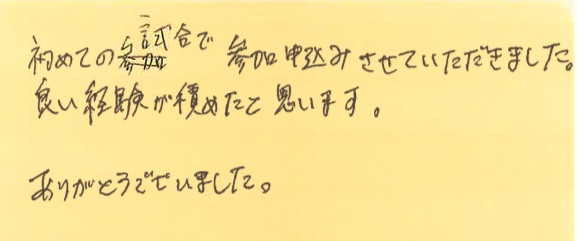 初めての試合で参加申込みさせていただきました。
良い経験が積めたと思います。
ありがとうございました。